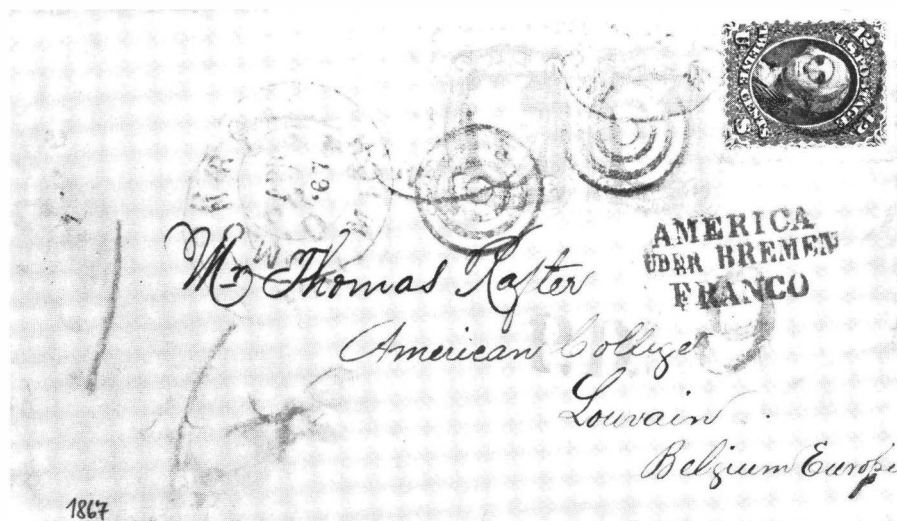 U.S. POSTAGE
AMERICA
ÜBER BREMEN
FRANCO
Mr Thomas Rafter
American College
Louvain
Belgium Europe
67
1867